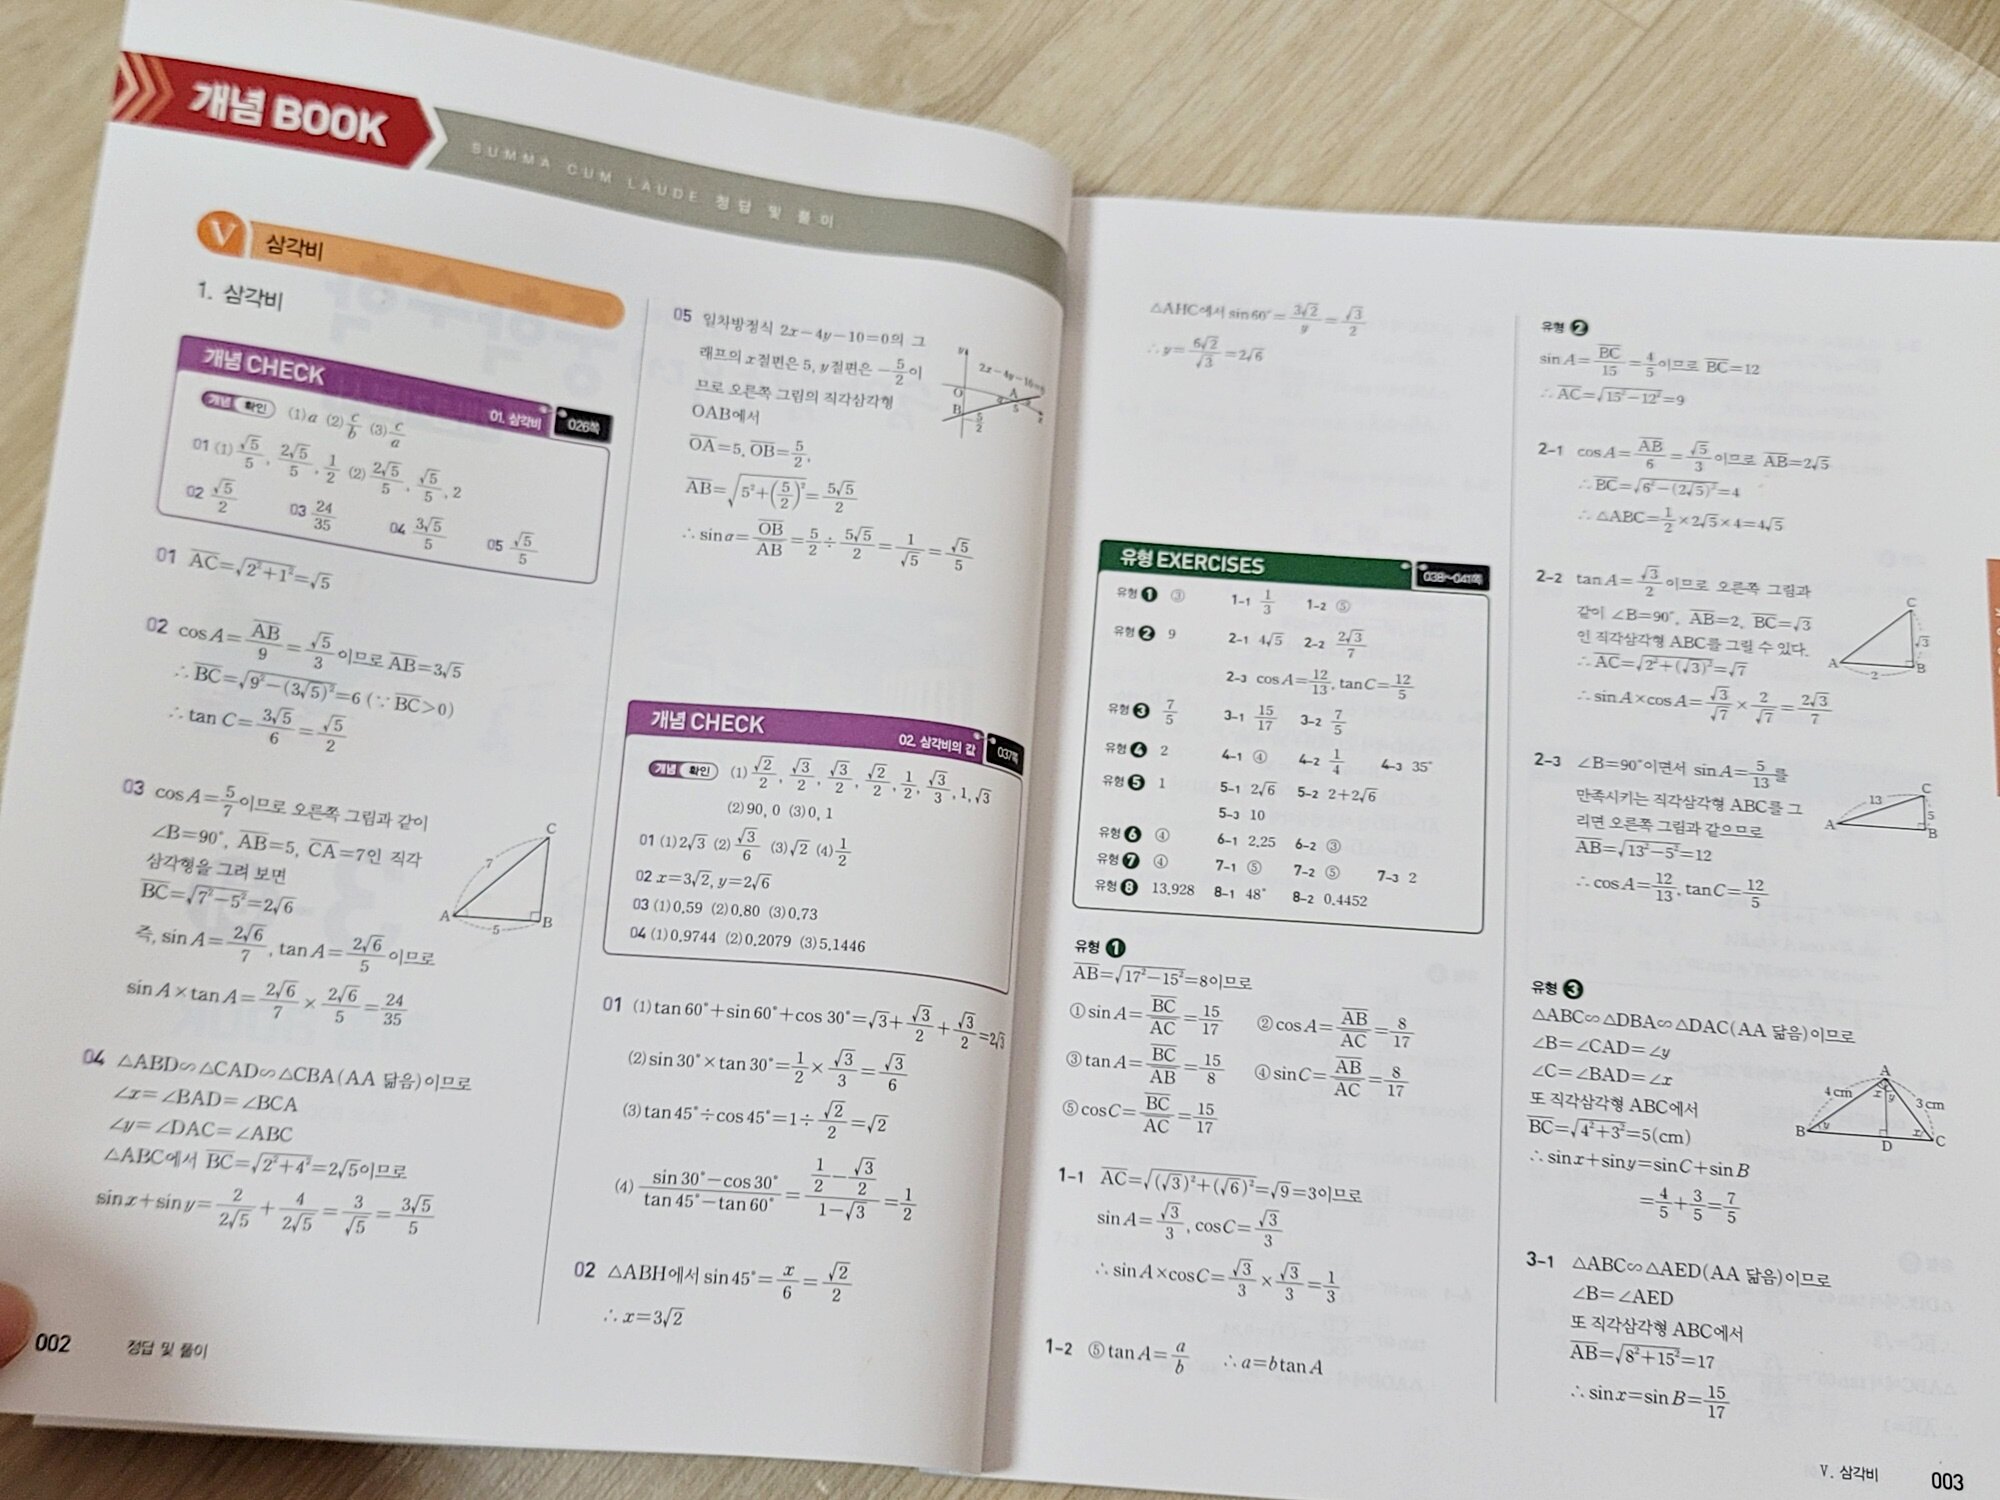 개념 BOOK
SUMMA CUM LAUDE 정답 및 풀이
V 삼각비
1. 삼각비
개념 CHECK
01. 삼각비 026쪽
개념 확인 (1) a (2) c/b (3) c/a
01 (1) √5/5, 2√5/5, 1/2 (2) 2√5/5, √5/5, 2
02 √5/2 03 24/35 04 3√5/5 05 √5/5
01 AC=√(2²+1²)=√5
02 cos A=AB/9=√5/3이므로 AB=3√5
∴ BC=√(9²-(3√5)²)=6 (∵ BC>0)
∴ tan C=3√5/6=√5/2
03 cos A=5/7이므로 오른쪽 그림과 같이
∠B=90°, AB=5, CA=7인 직각
삼각형을 그려 보면
BC=√(7²-5²)=2√6
즉, sin A=2√6/7, tan A=2√6/5이므로
sin A×tan A=2√6/7×2√6/5=24/35
C
7
A
5
B
04 △ABD∽△CAD∽△CBA(AA 닮음)이므로
∠x=∠BAD=∠BCA
∠y=∠DAC=∠ABC
△ABC에서 BC=√(2²+4²)=2√5이므로
sin x+sin y=2/2√5+4/2√5=3/√5=3√5/5
002 정답 및 풀이
05 일차방정식 2x-4y-10=0의 그
래프의 x절편은 5, y절편은 -5/2이
므로 오른쪽 그림의 직각삼각형
OAB에서
OA=5, OB=5/2,
AB=√(5²+(5/2)²)=5√5/2
∴ sin a=OB/AB=5/2÷5√5/2=1/√5=√5/5
y
2x-4y-10=0
O
A
a
5
B
5/2
x
개념 CHECK
02. 삼각비의 값 037쪽
개념 확인 (1) √2/2, √3/2, √3/2, √2/2, 1/2, √3/3, 1, √3
(2) 90, 0 (3) 0, 1
01 (1) 2√3 (2) √3/6 (3) √2 (4) 1/2
02 x=3√2, y=2√6
03 (1) 0.59 (2) 0.80 (3) 0.73
04 (1) 0.9744 (2) 0.2079 (3) 5.1446
01 (1) tan 60°+sin 60°+cos 30°=√3+√3/2+√3/2=2√3
(2) sin 30°×tan 30°=1/2×√3/3=√3/6
(3) tan 45°÷cos 45°=1÷√2/2=√2
(4) (sin 30°-cos 30°)/(tan 45°-tan 60°)=(1/2-√3/2)/(1-√3)=1/2
02 △ABH에서 sin 45°=x/6=√2/2
∴ x=3√2
△AHC에서 sin 60°=3√2/y=√3/2
∴ y=6√2/√3=2√6
유형 EXERCISES
038~041쪽
유형 1 ③ 1-1 1/3 1-2 ⑤
유형 2 9 2-1 4√5 2-2 2√3/7
2-3 cos A=12/13, tan C=12/5
유형 3 7/5 3-1 15/17 3-2 7/5
유형 4 2 4-1 ④ 4-2 1/4 4-3 35°
유형 5 1 5-1 2√6 5-2 2+2√6
5-3 10
유형 6 ④ 6-1 2.25 6-2 ③
유형 7 ④ 7-1 ⑤ 7-2 ⑤ 7-3 2
유형 8 13.928 8-1 48° 8-2 0.4452
유형 1
AB=√(17²-15²)=8이므로
① sin A=BC/AC=15/17 ② cos A=AB/AC=8/17
③ tan A=BC/AB=15/8 ④ sin C=AB/AC=8/17
⑤ cos C=BC/AC=15/17
1-1 AC=√((√3)²+(√6)²)=√9=3이므로
sin A=√3/3, cos C=√3/3
∴ sin A×cos C=√3/3×√3/3=1/3
1-2 ⑤ tan A=a/b ∴ a=b tan A
유형 2
sin A=BC/15=4/5이므로 BC=12
∴ AC=√(15²-12²)=9
2-1 cos A=AB/6=√5/3이므로 AB=2√5
∴ BC=√(6²-(2√5)²)=4
∴ △ABC=1/2×2√5×4=4√5
2-2 tan A=√3/2이므로 오른쪽 그림과
같이 ∠B=90°, AB=2, BC=√3
인 직각삼각형 ABC를 그릴 수 있다.
∴ AC=√(2²+(√3)²)=√7
∴ sin A×cos A=√3/√7×2/√7=2√3/7
C
√3
A
2
B
2-3 ∠B=90°이면서 sin A=5/13를
만족시키는 직각삼각형 ABC를 그
리면 오른쪽 그림과 같으므로
AB=√(13²-5²)=12
∴ cos A=12/13, tan C=12/5
C
13
5
A
B
유형 3
△ABC∽△DBA∽△DAC(AA 닮음)이므로
∠B=∠CAD=∠y
∠C=∠BAD=∠x
또 직각삼각형 ABC에서
BC=√(4²+3²)=5(cm)
∴ sin x+sin y=sin C+sin B
=4/5+3/5=7/5
A
4 cm
x y
3 cm
B
y
D
x
C
3-1 △ABC∽△AED(AA 닮음)이므로
∠B=∠AED
또 직각삼각형 ABC에서
AB=√(8²+15²)=17
∴ sin x=sin B=15/17
V. 삼각비 003